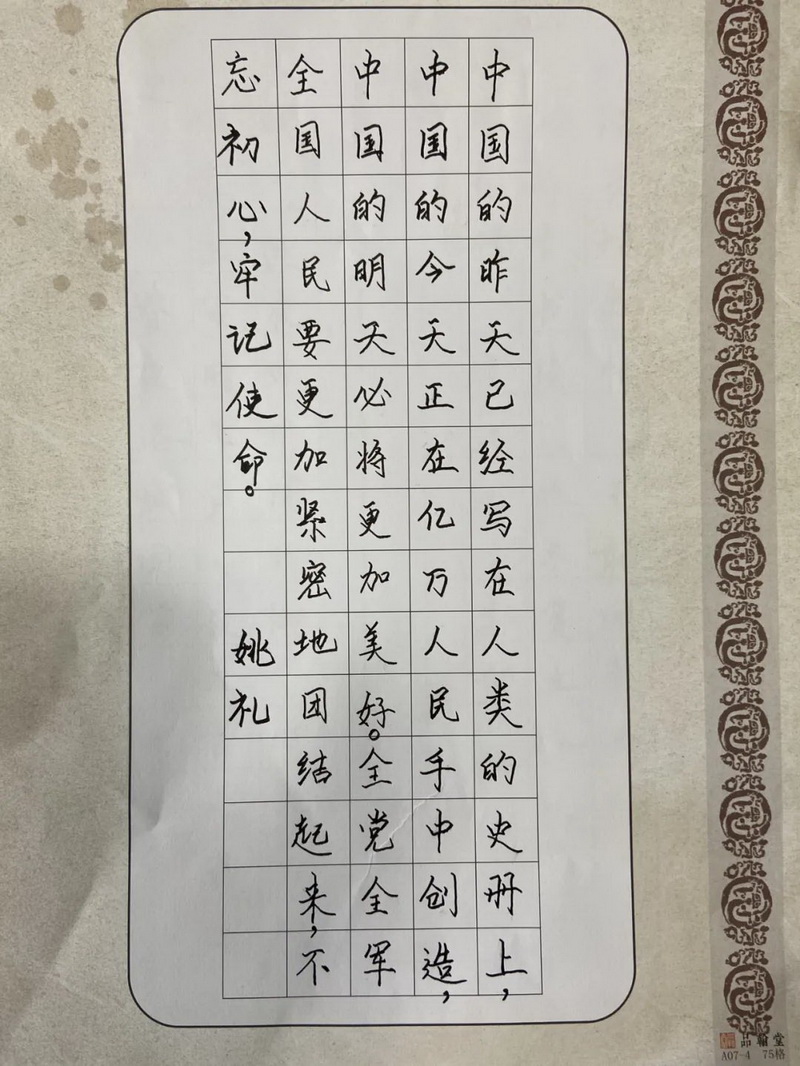 中国的昨天已经写在人类的史册上，
中国的今天正在亿万人民手中创造，
中国的明天必将更加美好。全党全军
全国人民要更加紧密地团结起来，不
忘初心，牢记使命。
姚礼
品翰堂
A07-4 75格